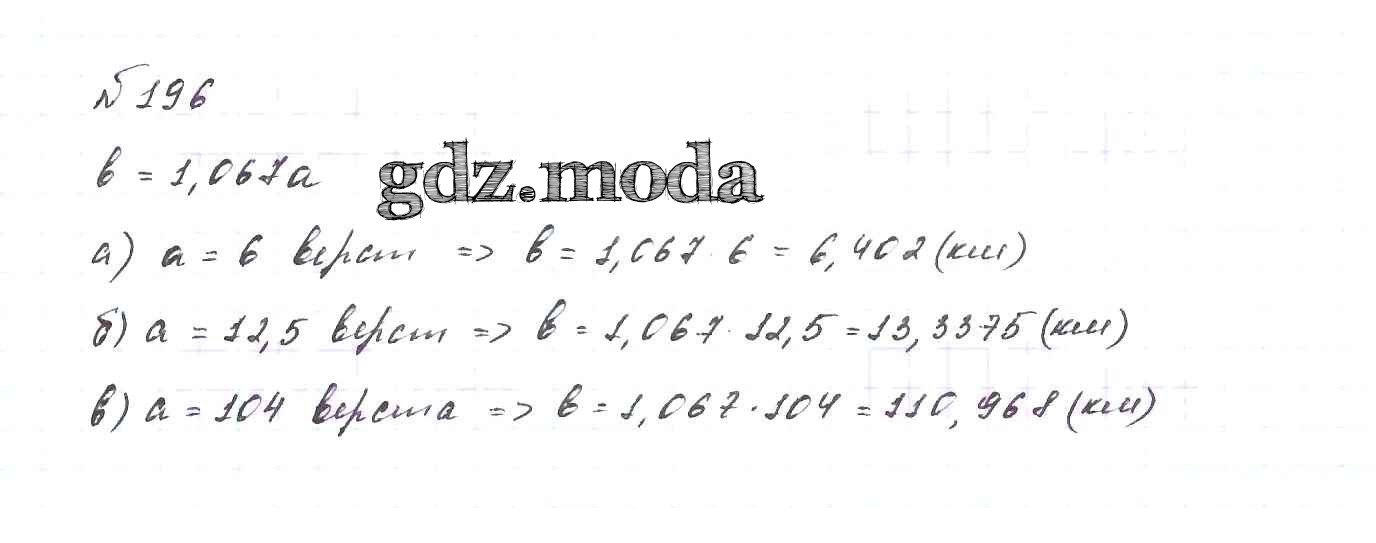 №196
в = 1,067а
gdz.moda
а) а = 6 верст => в = 1,067·6 = 6,402 (км)
б) а = 12,5 верст => в = 1,067·12,5 = 13,3375 (км)
в) а = 104 верста => в = 1,067·104 = 110,968 (км)